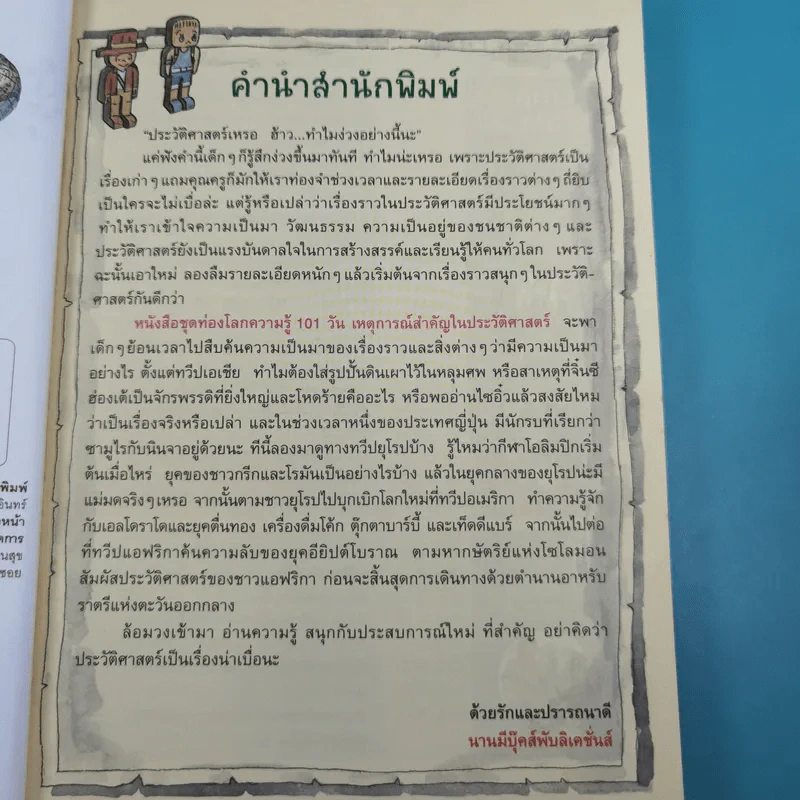 คำนำสำนักพิมพ์
"ประวัติศาสตร์เหรอ ฮ้าว...ทำไมง่วงอย่างนี้นะ"
แค่ฟังคำนี้เด็กๆ ก็รู้สึกง่วงขึ้นมาทันที ทำไมน่ะเหรอ เพราะประวัติศาสตร์เป็น
เรื่องเก่าๆ แถมคุณครูก็มักให้เราท่องจำช่วงเวลาและรายละเอียดเรื่องราวต่างๆ ถี่ยิบ
เป็นใครจะไม่เบื่อล่ะ แต่รู้หรือเปล่าว่าเรื่องราวในประวัติศาสตร์มีประโยชน์มากๆ
ทำให้เราเข้าใจความเป็นมา วัฒนธรรม ความเป็นอยู่ของชนชาติต่างๆ และ
ประวัติศาสตร์ยังเป็นแรงบันดาลใจในการสร้างสรรค์และเรียนรู้ให้คนทั่วโลก เพราะ
ฉะนั้นเอาใหม่ ลองลืมรายละเอียดหนักๆ แล้วเริ่มต้นจากเรื่องราวสนุกๆ ในประวัติ-
ศาสตร์กันดีกว่า
หนังสือชุดท่องโลกความรู้ 101 วัน เหตุการณ์สำคัญในประวัติศาสตร์ จะพา
เด็กๆ ย้อนเวลาไปสืบค้นความเป็นมาของเรื่องราวและสิ่งต่างๆ ว่ามีความเป็นมา
อย่างไร ตั้งแต่ทวีปเอเชีย ทำไมต้องใส่รูปปั้นดินเผาไว้ในหลุมศพ หรือสาเหตุที่จิ๋นซี
ฮ่องเต้เป็นจักรพรรดิที่ยิ่งใหญ่และโหดร้ายคืออะไร หรือพออ่านไซอิ๋วแล้วสงสัยไหม
ว่าเป็นเรื่องจริงหรือเปล่า และในช่วงเวลาหนึ่งของประเทศญี่ปุ่น มีนักรบที่เรียกว่า
ซามูไรกับนินจาอยู่ด้วยนะ ทีนี้ลองมาดูทางทวีปยุโรปบ้าง รู้ไหมว่ากีฬาโอลิมปิกเริ่ม
ต้นเมื่อไหร่ ยุคของชาวกรีกและโรมันเป็นอย่างไรบ้าง แล้วในยุคกลางของยุโรปน่ะมี
แม่มดจริงๆ เหรอ จากนั้นตามชาวยุโรปไปบุกเบิกโลกใหม่ที่ทวีปอเมริกา ทำความรู้จัก
กับเอลโดราโดและยุคตื่นทอง เครื่องดื่มโค้ก ตุ๊กตาบาร์บี้ และเท็ดดีแบร์ จากนั้นไปต่อ
ที่ทวีปแอฟริกาค้นความลับของยุคอียิปต์โบราณ ตามหากษัตริย์แห่งโซโลมอน
สัมผัสประวัติศาสตร์ของชาวแอฟริกา ก่อนจะสิ้นสุดการเดินทางด้วยตำนานอาหรับ
ราตรีแห่งตะวันออกกลาง
ล้อมวงเข้ามา อ่านความรู้ สนุกกับประสบการณ์ใหม่ ที่สำคัญ อย่าคิดว่า
ประวัติศาสตร์เป็นเรื่องน่าเบื่อนะ
ด้วยรักและปรารถนาดี
นานมีบุ๊คส์พับลิเคชั่นส์